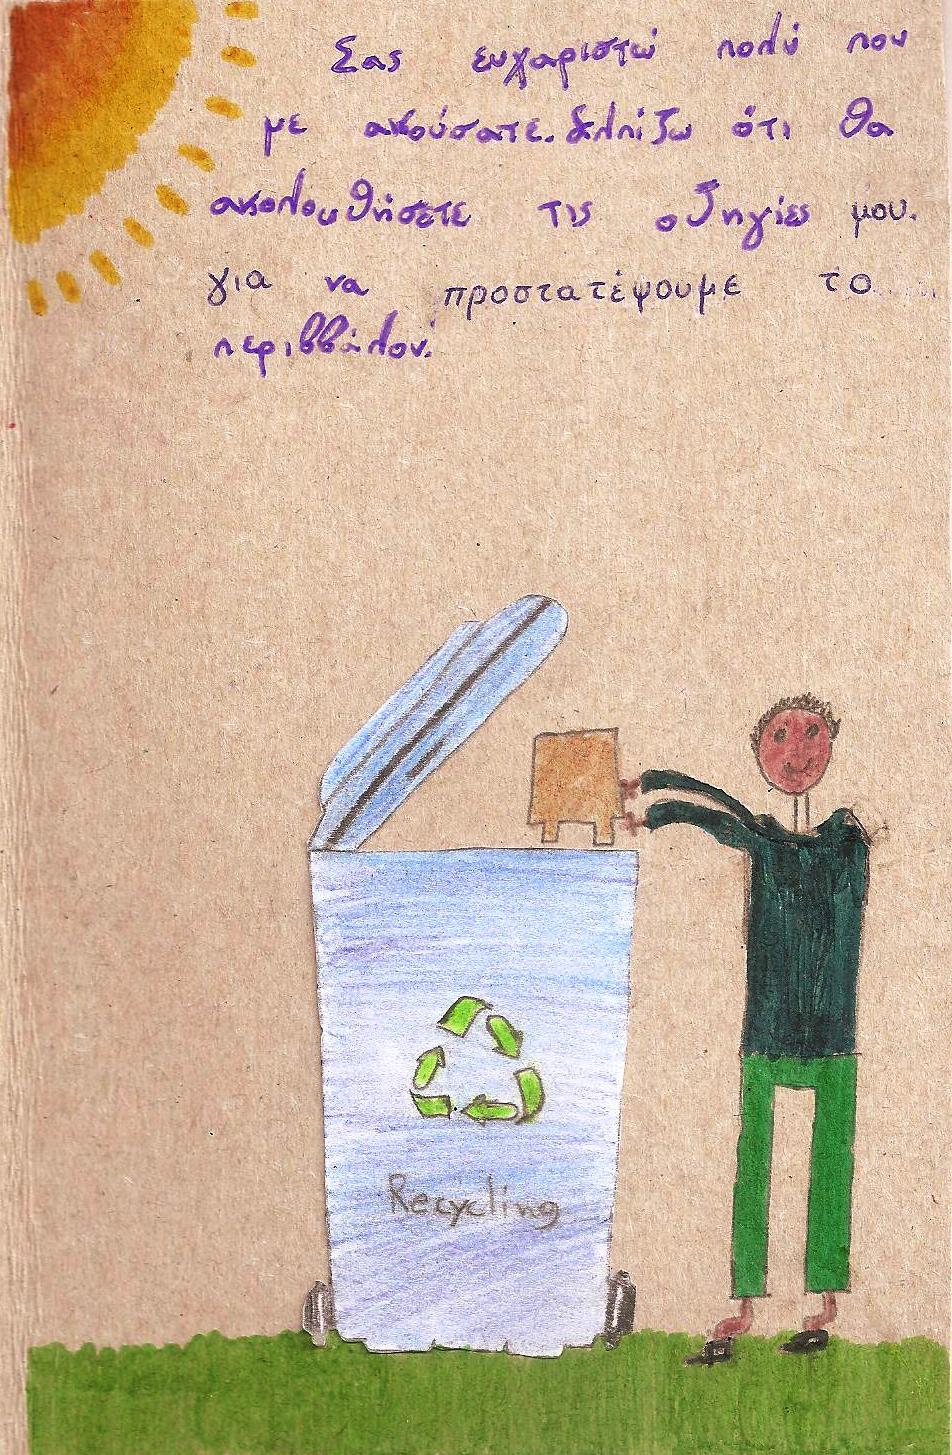 Σας ευχαριστώ πολύ που
με ακούσατε. Ελπίζω ότι θα
ακολουθήσετε τις οδηγίες μου.
για να προστατέψουμε το
περιββάλον.
Recycling